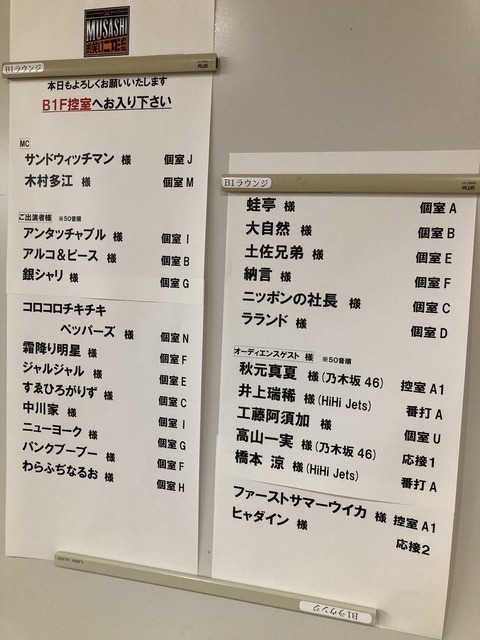 MUSASHI
お笑い二刀流
B1ラウンジ
PLUS
本日もよろしくお願いいたします
B1F控室へお入り下さい
MC
サンドウィッチマン 様 個室 J
木村多江 様 個室 M
ご出演者様 ※50音順
アンタッチャブル 様 個室 I
アルコ&ピース 様 個室 B
銀シャリ 様 個室 G
コロコロチキチキ
ペッパーズ 様 個室 N
霜降り明星 様 個室 F
ジャルジャル 様 個室 E
すゑひろがりず 様 個室 C
中川家 様 個室 I
ニューヨーク 様 個室 G
バンクブーブー 様 個室 F
わらふぢなるお 様 個室 H
B1ラウンジ
PLUS
蛙亭 様 個室 A
大自然 様 個室 B
土佐兄弟 様 個室 E
納言 様 個室 F
ニッポンの社長 様 個室 C
ラランド 様 個室 D
オーディエンスゲスト 様 ※50音順
秋元真夏 様 (乃木坂 46) 控室 A1
井上瑞稀 様 (HiHi Jets) 番打 A
工藤阿須加 様 個室 U
高山一実 様 (乃木坂 46) 応接 1
橋本 涼 様 (HiHi Jets) 番打 A
ファーストサマーウイカ 様 控室 A1
ヒャダイン 様 応接 2
B1ラウンジ